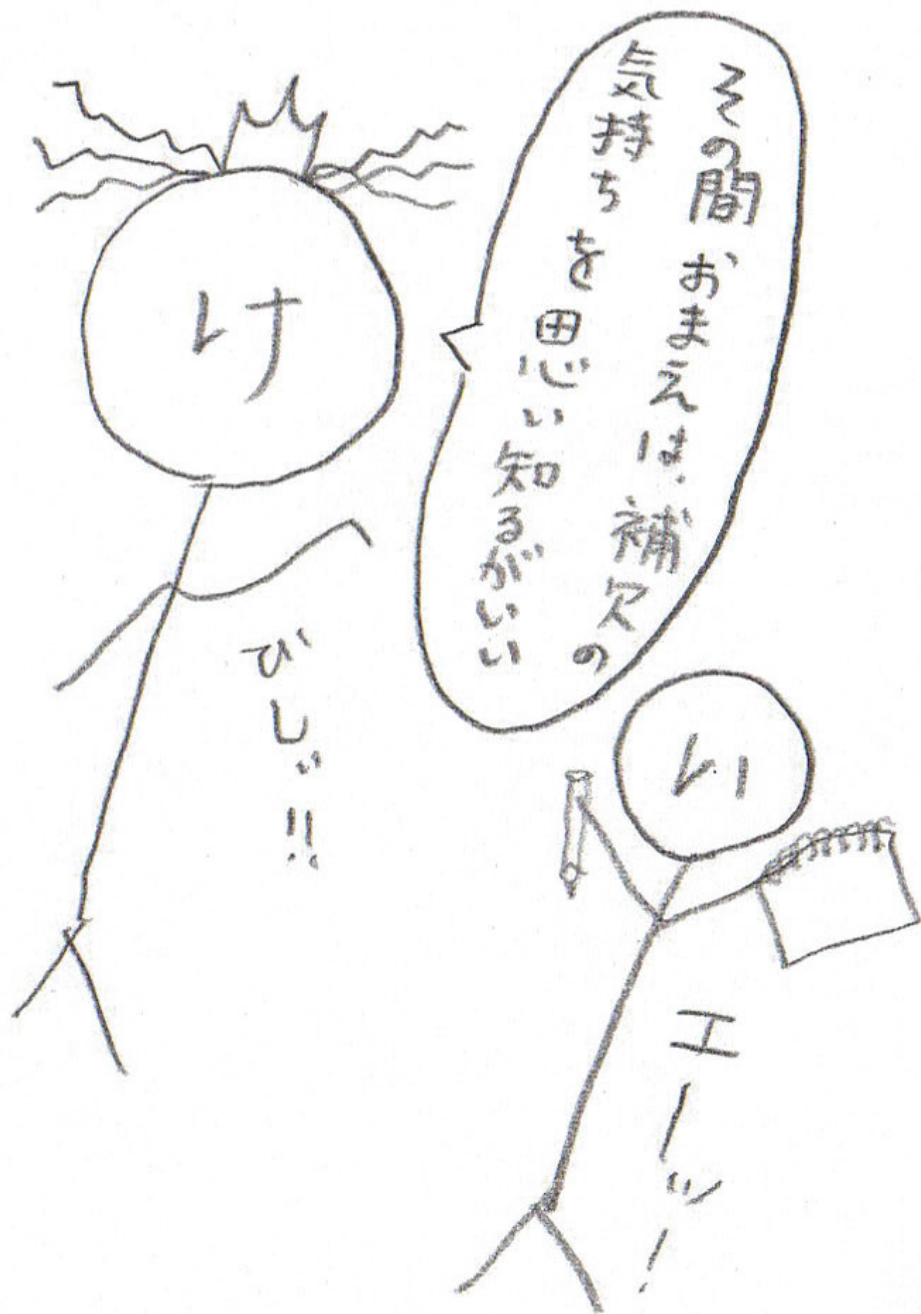 その間おまえは、補欠の
気持ちを思い知るがいい
け
びしぃ!!
い
エーッ!